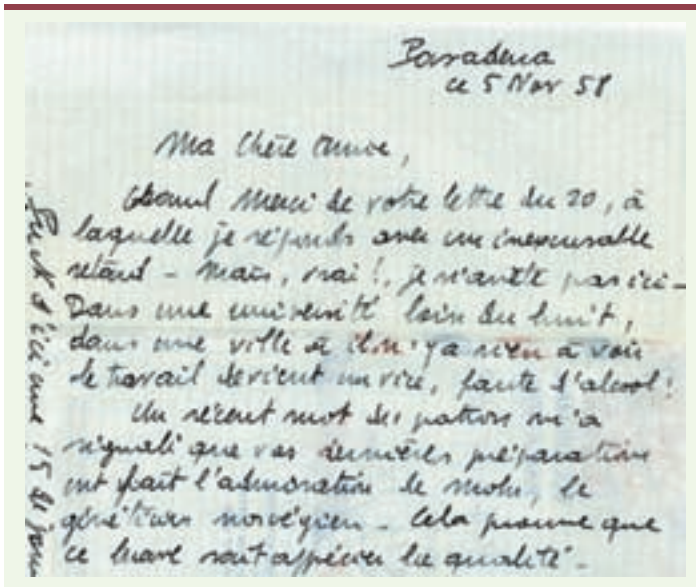 Pasadena
ce 5 Nov 58
Ma Chère Amie,
Grand Merci de votre lettre du 20, à
laquelle je réponds avec un inexcusable
retard - Mais, vrai!, je n'arrête pas ici -
Dans une université loin du bruit,
dans une ville où il n'y a rien à voir
le travail devient un vice, faute d'alcool!
Un récent mot des patrons m'a
signalé que vos dernières préparations
ont fait l'admiration de le
généticien norvégien - Cela prouve que
ce brave sait apprécier la qualité -
d'ici une 15 de jours